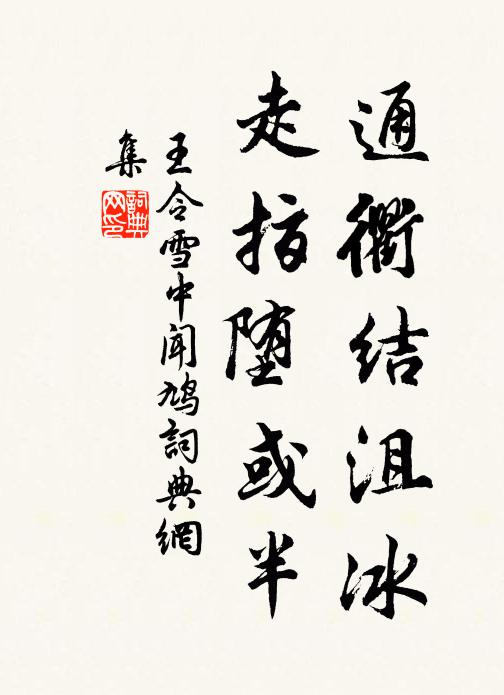 通衢结沮冰
走指堕或半
王令雪中闻鸠词典網
集
詞典
网印